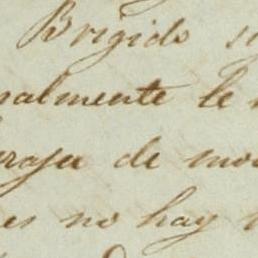 Brigido
almente le
de mo
es no hay